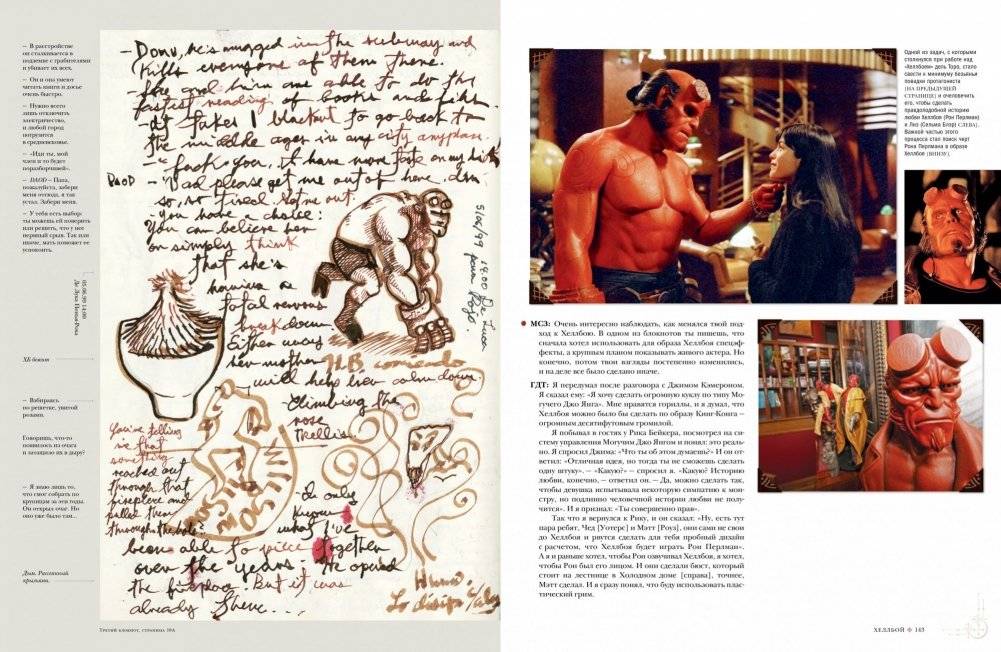 — В расстройстве
он сталкивается в
подземке с грабителями
и убивает их всех.
— Он и она умеют
читать книги и досье
очень быстро.
— Нужно всего
лишь отключить
электричество,
и любой город
погрузится
в средневековье.
— «Иди ты, мой
член и то будет
поразборчивей».
— DAOD – Папа,
пожалуйста, забери
меня отсюда, я так
устал. Забери меня.
— У тебя есть выбор:
ты можешь ей поверить
или решить, что у нее
нервный срыв. Так или
иначе, мать поможет ее
успокоить.
05/06/99 14:00
ХБ бежит
— Взбираясь
по решетке, увитой
розами.
Говоришь, что-то
появилось из очага
и затащило их в дыру?
— Я знаю лишь то,
что смог собрать по
крупицам за эти годы.
Он открыл очаг. Но
оно уже было там...
Дым. Рассветный
крыльями.
- he's mugged in the subway and
kills everyone of them there.
able to do the
fastest reading of books and files
- It takes 1 blackout to go back to
the middle ages in any city anyplace.
- "fuck you, I have more taste on my
DAOD - "Dad please get me out of here, I'm
so, so tired. Get me out.
- You have a choice:
You can believe her
or simply think
that she's
having a
total nervous
breakdown.
Either way
her mother
will help her calm down.
5/06/99
14:00 De Luca
para Rojo.
H.B.
- Climbing the
rose
trellis
You're telling
me that
something
reached out
through that
fireplace and
pulled them
through the hole?
- I only
know
what I've
been able to piece together
over the years. He opened
the fireplace. But it was
already there...
Humo.
Третий блокнот, страница 19А
Одной из задач, с которыми
столкнулся при работе над
«Хеллбоем» дель Торо, стало
свести к минимуму безьяньи
повадки протагониста
[НА ПРЕДЫДУЩЕЙ
СТРАНИЦЕ] и очеловечить
его, чтобы сделать
правдоподобной историю
любви Хеллбоя (Рон Перлман)
и Лиз (Сельма Блэр) [СЛЕВА].
Важной частью этого
процесса стал поиск черт
Рона Перлмана в образе
Хеллбоя [ВНИЗУ].
МСЗ: Очень интересно наблюдать, как менялся твой под-
ход к Хеллбою. В одном из блокнотов ты пишешь, что
сначала хотел использовать для образа Хеллбоя спецэф-
фекты, а крупным планом показывать живого актера. Но
конечно, потом твои взгляды постепенно изменились,
и на деле все было сделано иначе.
ГДТ: Я передумал после разговора с Джимом Кэмероном.
Я сказал ему: «Я хочу сделать огромную куклу по типу Мо-
гучего Джо Янга». Мне нравятся гориллы, и я думал, что
Хеллбоя можно было бы сделать по образу Кинг-Конга –
огромным десятифутовым громилой.
Я побывал в гостях у Рика Бейкера, посмотрел на си-
стему управления Могучим Джо Янгом и понял: это реаль-
но. Я спросил Джима: «Что ты об этом думаешь?» И он от-
ветил: «Отличная идея, но тогда ты не сможешь сделать
одну штуку». – «Какую?» – спросил я. «Какую? Историю
любви, конечно, – ответил он. – Да, можно сделать так,
чтобы девушка испытывала некоторую симпатию к мон-
стру, но подлинно человечной истории любви не полу-
чится». И я признал: «Ты совершенно прав».
Так что я вернулся к Рику, и он сказал: «Ну, есть тут
пара ребят, Чед [Уотерс] и Мэтт [Роуз], они сами не свои
до Хеллбоя и рвутся сделать для тебя пробный дизайн
с расчетом, что Хеллбоя будет играть Рон Перлман».
А я и раньше хотел, чтобы Рон озвучивал Хеллбоя, я хотел,
чтобы Рон был его лицом. И они сделали бюст, который
стоит на лестнице в Холодном доме [справа], точнее,
Мэтт сделал. И я сразу понял, что буду использовать плас-
тический грим.
ХЕЛЛБОЙ
143